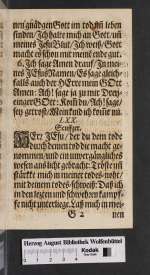 nen gnädgen Gott im tod mit leben
finden. Ich halte mich an Gott, um
meines Jesu Blut/ Ich weiß/ Gott
macht es schon mit mein' end gut.
6. Ich sage Amen drauf/ In mei-
nes JEsu Namen/ Es sage gleich-
falls auch der HErre mein GOtt
Amen: Ach! sage ja zu mir Drey-
einger GOtt: Kom du/ Ach! sage/
sey getrost/ Mein kind ich kom̃e zu
LXX.
Seufzer.
HErr JEsu/ der du dem tode
durch deinen tod die macht ge-
nommen/ und ein unvergängliches
wesen ans licht gebracht: Tröste un
stärcke mich in meiner todes-noht/
mit deinem todes-schweiß: Daß ich
in den letzten und schwersten kampf-
fe nicht unterliege. Laß mich in mei-
G 2 nen
Herzog August Bibliothek Wolfenbüttel
Kodak